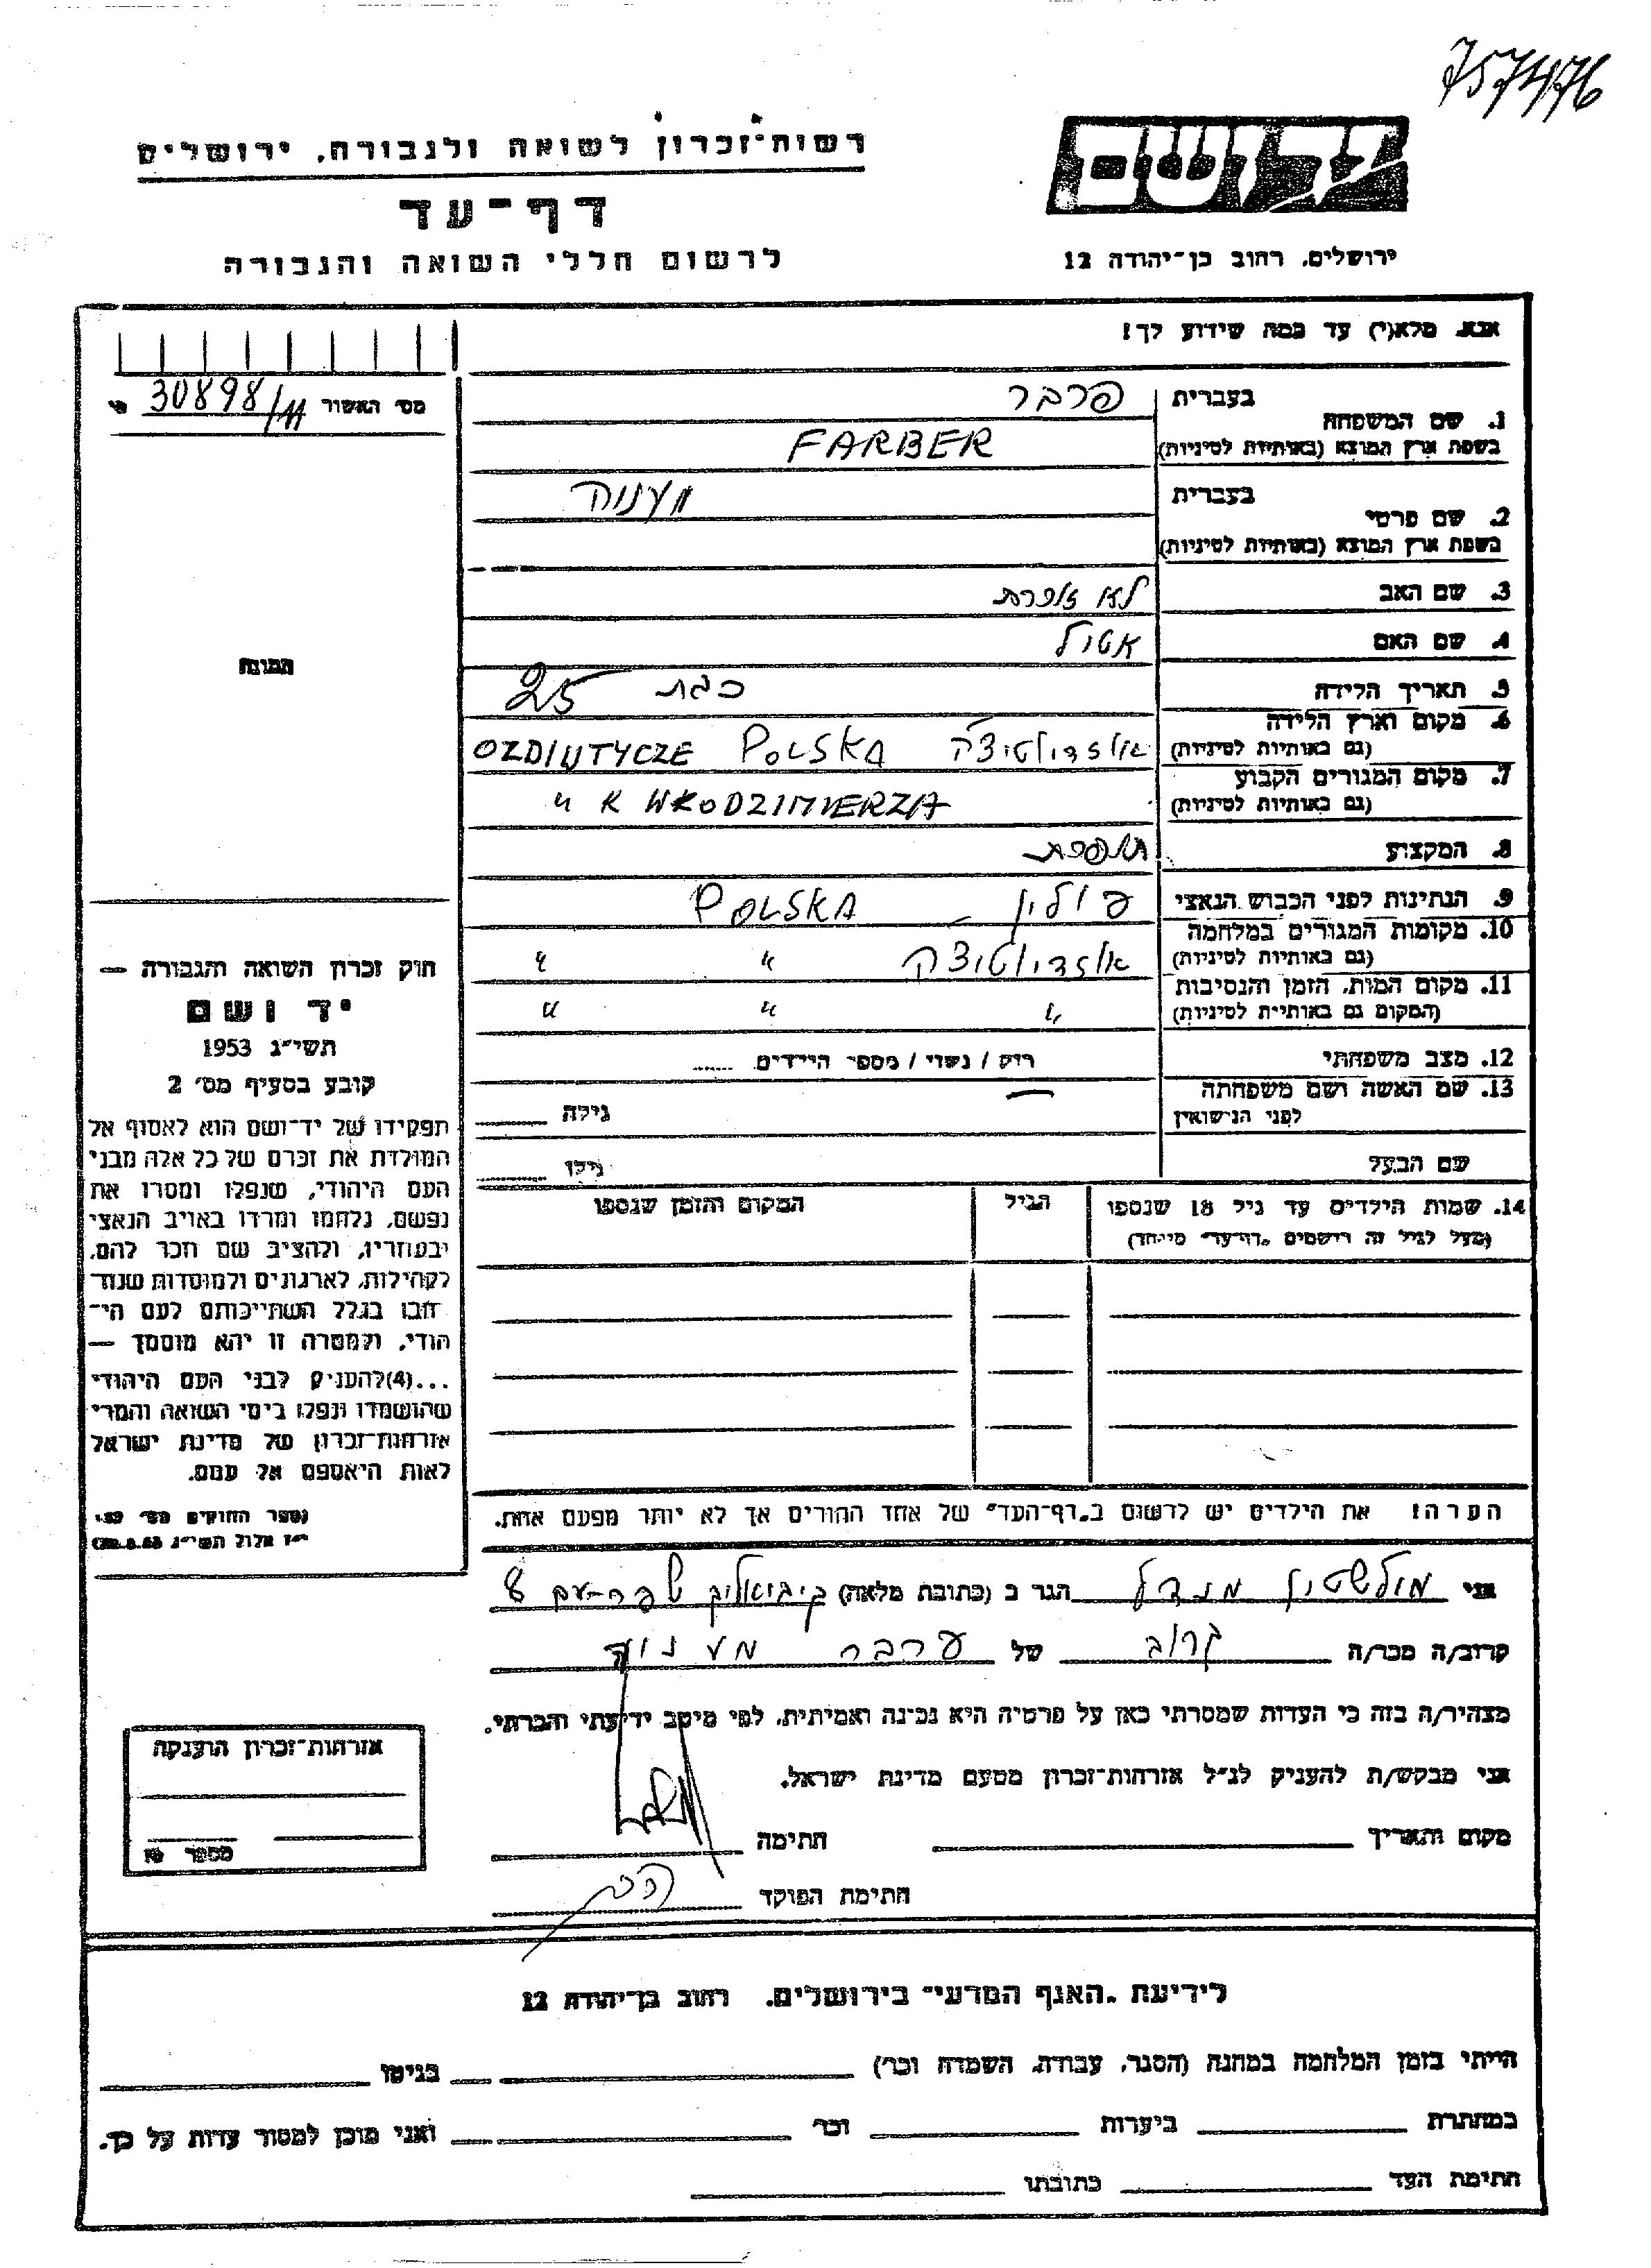 757476
רשות־זכרון לשואה ולגבורה, ירושלים
דף־עד
לרשום חללי השואה והגבורה
ירושלים, רחוב בן־יהודה 12
אנא, מלא(י) עד כמה שידוע לך!
מס׳ האשור 30898/11
בעברית פרבר
1. שם המשפחה
בשפת ארץ המוצא (באותיות לטיניות) FARBER
בעברית
2. שם פרטי
בשפת ארץ המוצא (באותיות לטיניות)
3. שם האב לא זוכרת
4. שם האם אטול
5. תאריך הלידה כבת 25
6. מקום וארץ הלידה
(גם באותיות לטיניות) אוזדיוטיצה POLSKA OZDIUTYCZE
7. מקום המגורים הקבוע
(גם באותיות לטיניות) " K WŁODZIMIERZA
8. המקצוע תופרת
9. הנתינות לפני הכבוש הנאצי פולין – POLSKA
10. מקומות המגורים במלחמה
(גם באותיות לטיניות) אוזדיוטיצה " "
11. מקום המות, הזמן והנסיבות
(המקום גם באותיות לטיניות) " " "
12. מצב משפחתי רוק / נשוי / מספר הילדים
13. שם האשה ושם משפחתה
לפני הנישואין גילה
שם הבעל גילו
14. שמות הילדים עד גיל 18 שנספו הגיל המקום והזמן שנספו
(מעל לגיל זה רושמים „דף־עד״ מיוחד)
התמונה
חוק זכרון השואה והגבורה —
יד ושם
תשי״ג 1953
קובע בסעיף מס׳ 2
תפקידו של יד־ושם הוא לאסוף אל
המולדת את זכרם של כל אלה מבני
העם היהודי, שנפלו ומסרו את
נפשם, נלחמו ומרדו באויב הנאצי
ובעוזריו, ולהציב שם וזכר להם,
לקהילות, לארגונים ולמוסדות שנח־
רבו בגלל השתייכותם לעם הי־
הודי, ולמטרה זו יהא מוסמך —
...(4)להעניק לבני העם היהודי
שהושמדו ונפלו בימי השואה והמרי
אזרחות־זכרון של מדינת ישראל
לאות היאספם אל עמם.
(ספר החוקים מס׳ 132,
י״ז אלול תשי״ג 28.8.53)
הערה! את הילדים יש לרשום ב„דף־העד״ של אחד ההורים אך לא יותר מפעם אחת.
אני מולשטיין מנדל הגר ב (כתובת מלאה) 8
קרוב/ה מכר/ה קרוב של
מצהיר/ה בזה כי העדות שמסרתי כאן על פרטיה היא נכונה ואמיתית, לפי מיטב ידיעתי והכרתי.
אני מבקש/ת להעניק לנ״ל אזרחות־זכרון מטעם מדינת ישראל.
מקום ותאריך חתימה
חתימת הפוקד
אזרחות־זכרון הוענקה
מספר
לידיעת „האגף המדעי״ בירושלים, רחוב בן־יהודה 12
הייתי בזמן המלחמה במחנה (הסגר, עבודה, השמדה וכר׳) בגיטו
במחתרת ביערות וכר׳ ואני מוכן למסור עדות על כך.
חתימת העד כתובתו